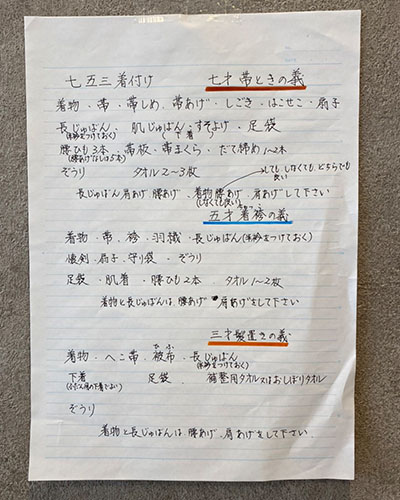 七五三着付け 七才 帯ときの義
着物・帯・帯しめ、帯あげ・しごき・はこせこ・扇子
長じゅばん 肌じゅばん・すそよけ・足袋
(体紗をつけておく) 下着
腰ひも3本・帯板・帯まくら・だて締め1~2本
(腰あげなしは5本)
ぞうり タオル2~3枚
しても、しなくても、どちらでも
良い
長じゅばん肩あげ、腰あげ、着物腰あげ、肩あげして下さい
(しなくても良い)
五才 着袴の義
着物・帯、袴・羽織・長じゅばん(体紗をつけておく)
懐剣・扇子・守り袋・ぞうり
足袋・肌着・腰ひも2本 タオル1~2枚
着物と長じゅばんは、腰あげ 肩あげをして下さい
三才 髪置きの義
ひふ
着物・へこ帯・被布・長じゅばん
(体紗をつけておく)
下着 足袋・補整用タオル又はおしぼりタオル
(ふだん用の下着でよい)
ぞうり
着物と長じゅばんは、腰あげ、肩あげをして下さい